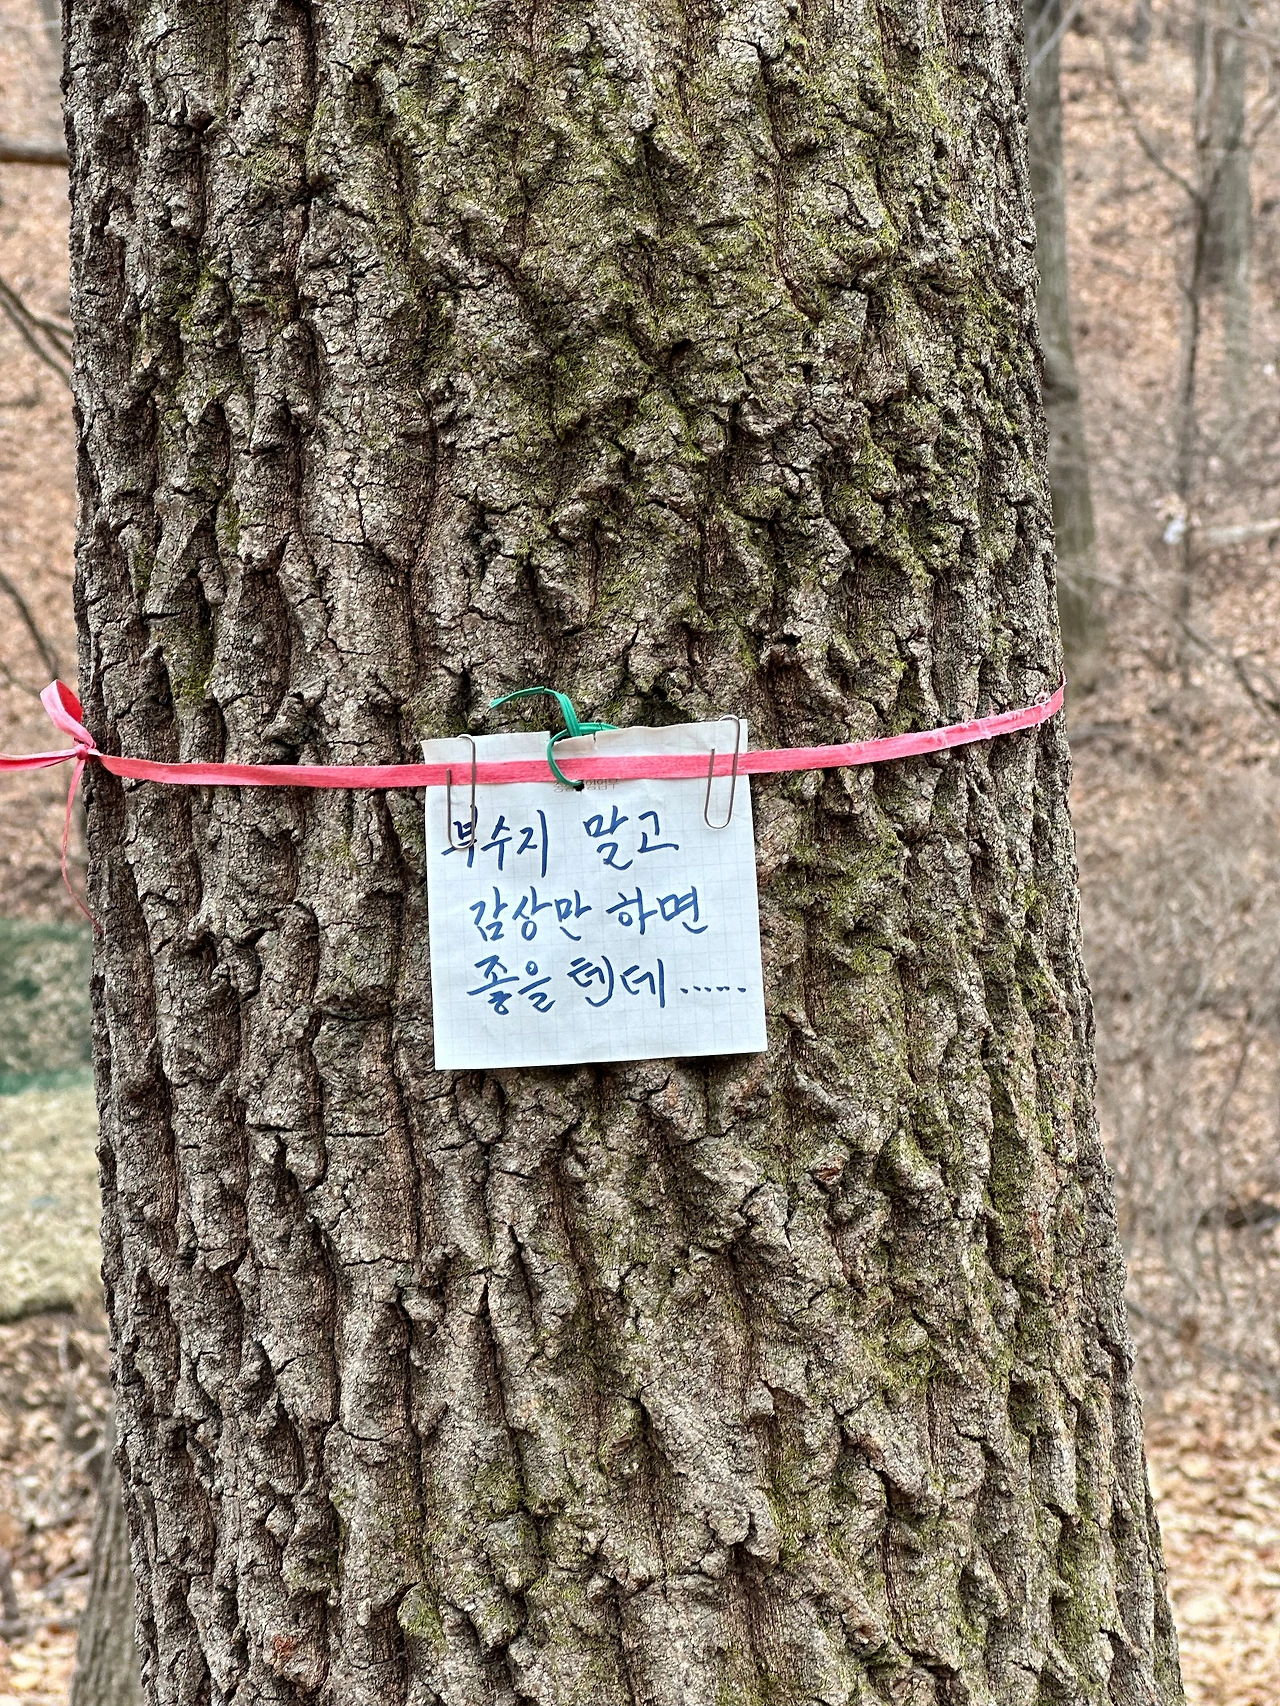 부수지 말고
감상만 하면
좋을 텐데......